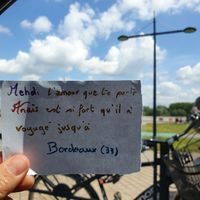 Mehdi l'amour que te porte
Anaïs est si fort qu'il a
voyagé jusqu'à
Bordeaux (33)